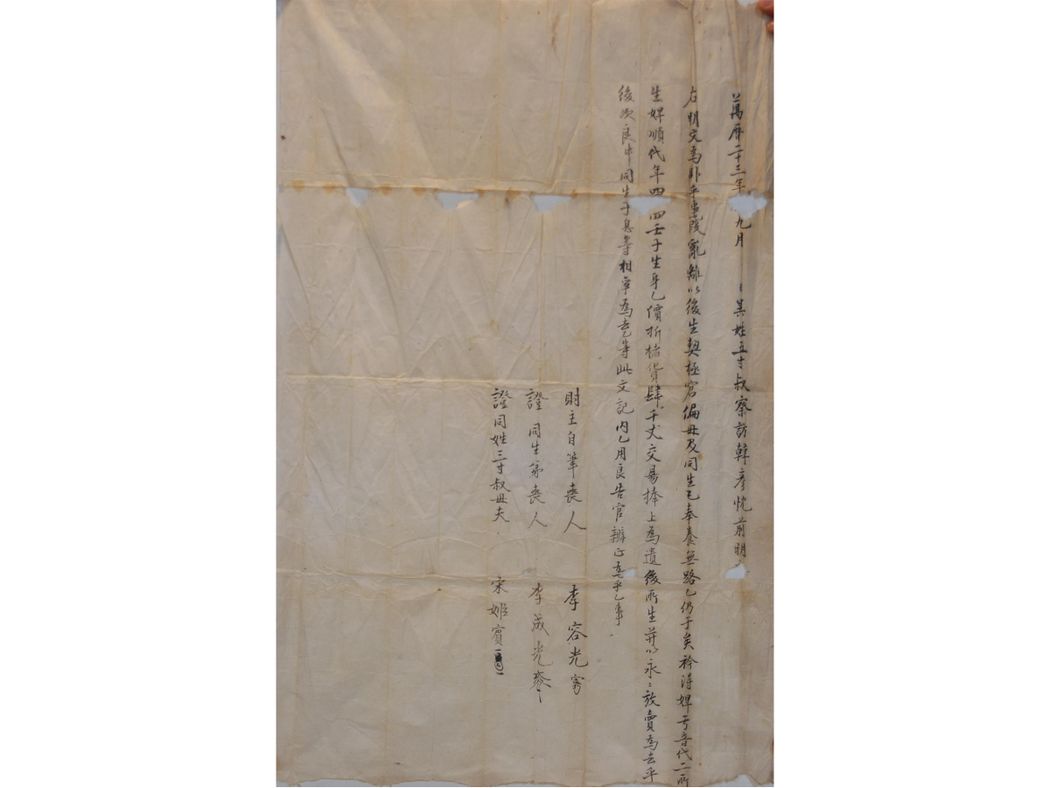 萬曆二十三年 九月 異姓五寸叔察訪韓彦忱前明文
右明文爲臥乎事段亂離以後生契極窘偏母及同生乙奉養無路乙仍于矣衿得婢亏音代二所
生婢順代年四 四壬子生身乙價折楮貨肆千丈交易捧上爲遣後所生幷以永永放賣爲去乎
後次良中同生子息等相爭爲去等此文記內乙用良告官辨正爲乎乙事
財主自筆喪人 李容光
證同生弟喪人 李成光
證同姓三寸叔母夫 宋姬賓